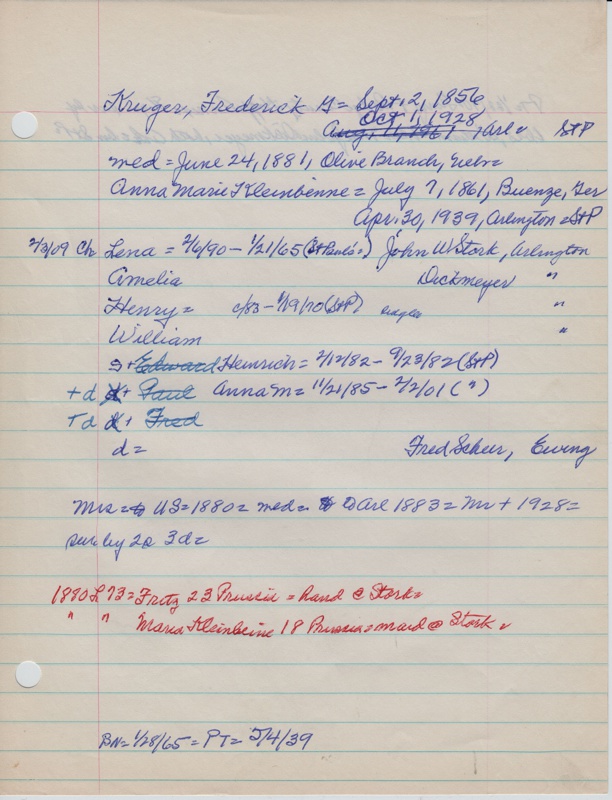 Kruger, Frederick G = Sept. 2, 1856
Oct. 1, 1928
Aug. 11, 1961, Arl = StP
med = June 24, 1881, Olive Branch, Nebr=
Anna Marie Kleinbenne = July 7, 1861, Buenze, Ger
Apr. 30, 1939, Arlington = StP
2/3/09 Ch Lena = 2/6/90 - 1/21/65 (St Paul's=) John W Stork, Arlington
Amelia Dickmeyer "
Henry = c/83 - 1/19/70 (StP) "
William "
s+ Edward Heinrich = 2/12/82 - 9/23/82 (StP)
+d + Paul Anna M = 11/21/85 - 2/2/01 (")
+d + Fred
d = Fred Scheer, Ewing
Mrs = US = 1880 = med = Arl 1883 = Mr + 1928 =
sur by 2s 3d =
1880 L 73 = Fritz 23 Prussia = hand @ Stork =
" " Maria Kleinbeine 18 Prussia = maid @ Stork =
BN = 1/28/65 = PT = 5/4/39